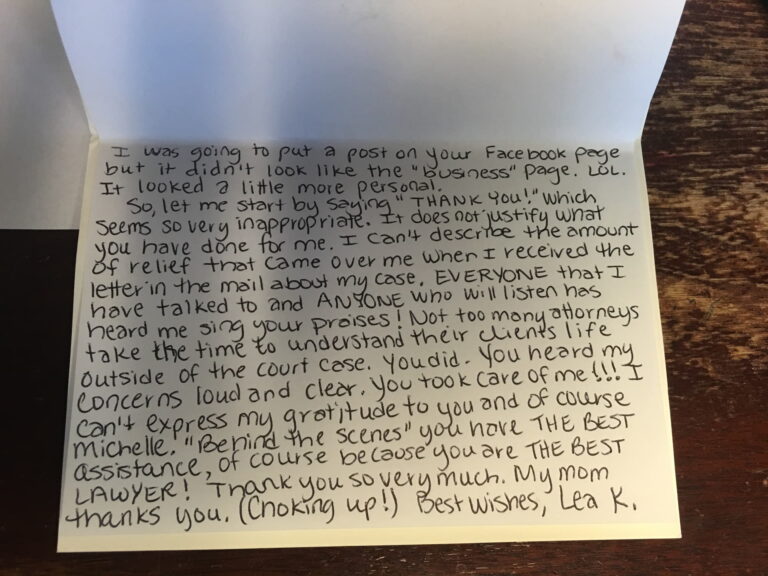 I was going to put a post on your Facebook page
but it didn't look like the "business" page. LOL.
It looked a little more personal.
So, let me start by saying "THANK YOU!" which
seems so very inappropriate. It does not justify what
you have done for me. I can't describe the amount
of relief that came over me when I received the
letter in the mail about my case. EVERYONE that I
have talked to and ANYONE who will listen has
heard me sing your praises! Not too many attorneys
take the time to understand their clients life
outside of the court case. You did. You heard my
concerns loud and clear. You took care of me!!! I
can't express my gratitude to you and of course
Michelle. "Behind the scenes" you have THE BEST
assistance, of course because you are THE BEST
LAWYER! Thank you so very much. My mom
thanks you. (Choking up!) Best wishes, Lea K.